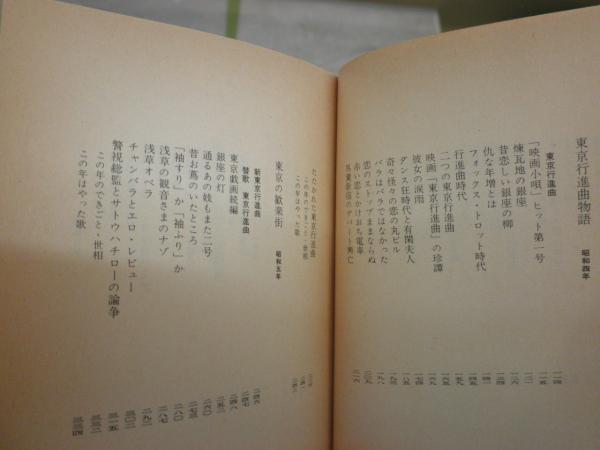 東京行進曲物語 昭和四年
東京行進曲
「映画小唄」ヒット第一号
煉瓦地の銀座
昔恋しい銀座の柳
仇な年増とは
フォックス・トロット時代
行進曲時代
二つの東京行進曲
映画「東京行進曲」の珍譚
彼女の涙雨
ダンス狂時代と有閑夫人
奇々怪々の恋の丸ビル
バラはバラではなかった
恋のストップままならぬ
赤い恋とかけおち電車
たたかれた東京行進曲
この年のできごと・世相
この年はやった歌
東京の歓楽街 昭和五年
新東京行進曲
替歌 東京行進曲
東京戯画続編
銀座の灯
通るあの妓もまた二号
昔お蔦のいたところ
「袖すり」か「袖ふり」か
浅草の観音さまのナゾ
浅草オペラ
チャンバラとエロ・レビュー
警視総監とサトウハチローの論争
この年のできごと・世相
この年はやった歌